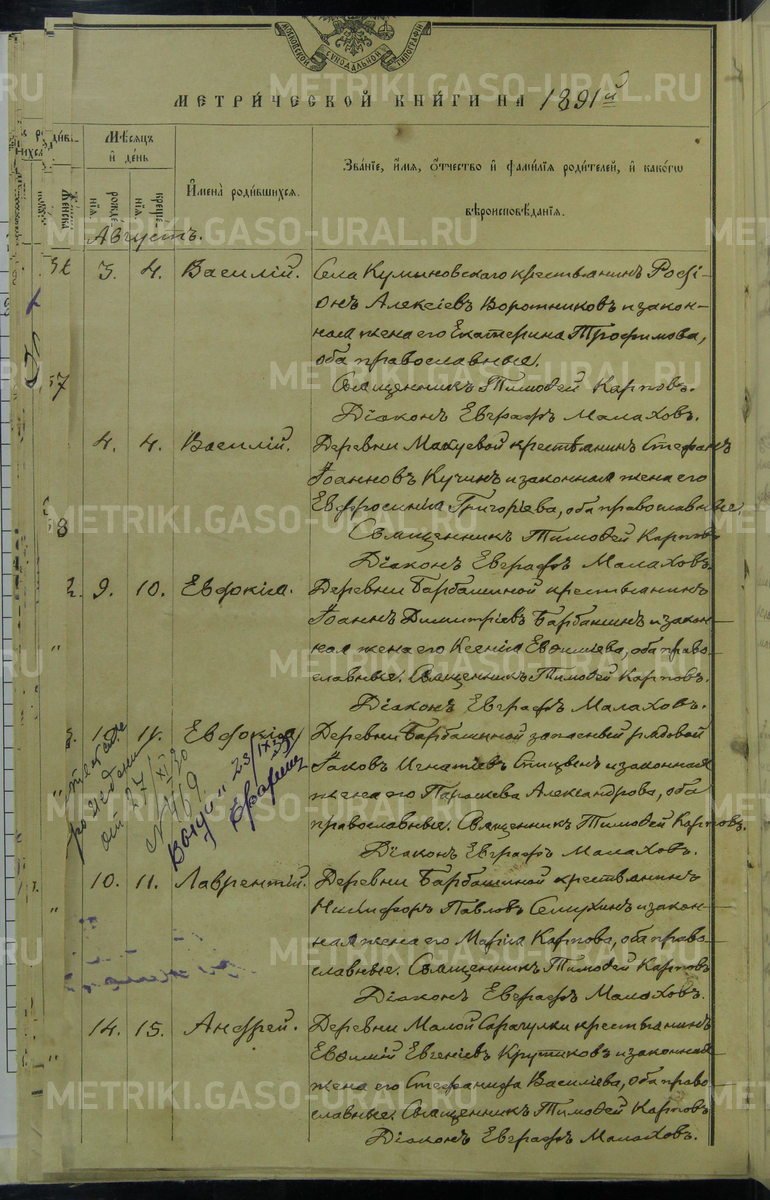 МОСКОВСКОЙ СѴНОДАЛЬНОЙ ТИПОГРАФІИ
МЕТРИ́ЧЕСКОЙ КНИ́ГИ НА 1891й
Мѣсяцъ и де́нь
рожде́нїѧ
креще́нїѧ
И҆мена̀ роди́вшихсѧ.
Зва́нїе, и҆́мѧ, ѻ҆́тчество и҆ фами́лїѧ роди́телей, и҆ како́гѡ
вѣроисповѣ́данїѧ.
Августъ.
3. 4. Василій. Села Кумыновскаго крестьянинъ Родi-
онъ Алексіевъ Воротниковъ и закон-
ная жена его Екатерина Трофимова,
оба православные.
Священникъ Тимоѳей Карповъ.
Діаконъ Евграфъ Малаховъ.
4. 4. Василій. Деревни Макуевой крестьянинъ Стефанъ
Іоанновъ Кучинъ и законная жена его
Евфросинія Григоріева, оба православные.
Священникъ Тимоѳей Карповъ
Діаконъ Евграфъ Малаховъ.
9. 10. Евдокія. Деревни Барбашиной крестьянинъ
Іоаннъ Димитріевъ Барбашинъ и закон-
ная жена его Ксенія Евѳиміева, оба право-
славные. Священникъ Тимоѳей Карповъ.
Діаконъ Евграфъ Малаховъ.
11. Евдокія Деревни Барбашиной запасный рядовой
Іаковъ Игнатіевъ и законная
жена его Параскева Александрова, оба
православные. Священникъ Тимоѳей Карповъ.
Діаконъ Евграфъ Малаховъ.
от 27/XI 30
№ 469
23/IX 39
10. 11. Лаврентій. Деревни Барбашиной крестьянинъ
Никифоръ Павловъ Семухинъ и закон-
ная жена его Марія Карпова, оба право-
славные. Священникъ Тимоѳей Карповъ
Діаконъ Евграфъ Малаховъ.
14. 15. Андрей. Деревни Малой Сарагулки крестьянинъ
Евѳимій Евгеніевъ Крутиковъ и законная
жена его Стефанида Василіева, оба право-
славные. Священникъ Тимоѳей Карповъ
Діаконъ Евграфъ Малаховъ.
METRIKI.GASO-URAL.RU